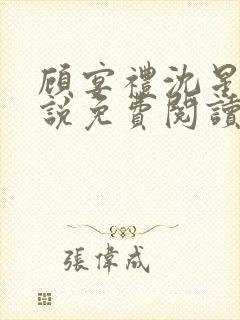 顾宴禮沈星
說免費閱讀
張偉成